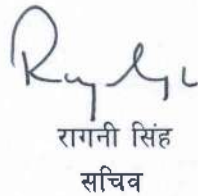 रागनी सिंह
सचिव